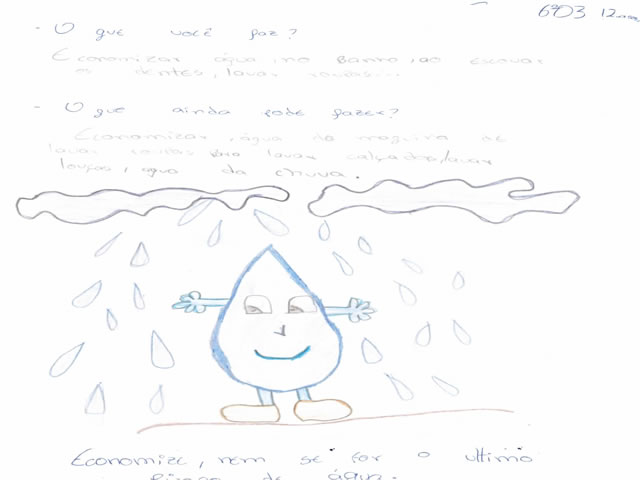 6º03 12 anos
- O que você faz?
Economizar água, no Banho, ao escovar
os dentes, lavar roupas...
- O que ainda pode fazer?
Economizar, água da maquina de
lavar roupas para lavar calçadas, lavar
louças, agua da chuva.
Economize, nem se for o ultimo
Pingo de água.